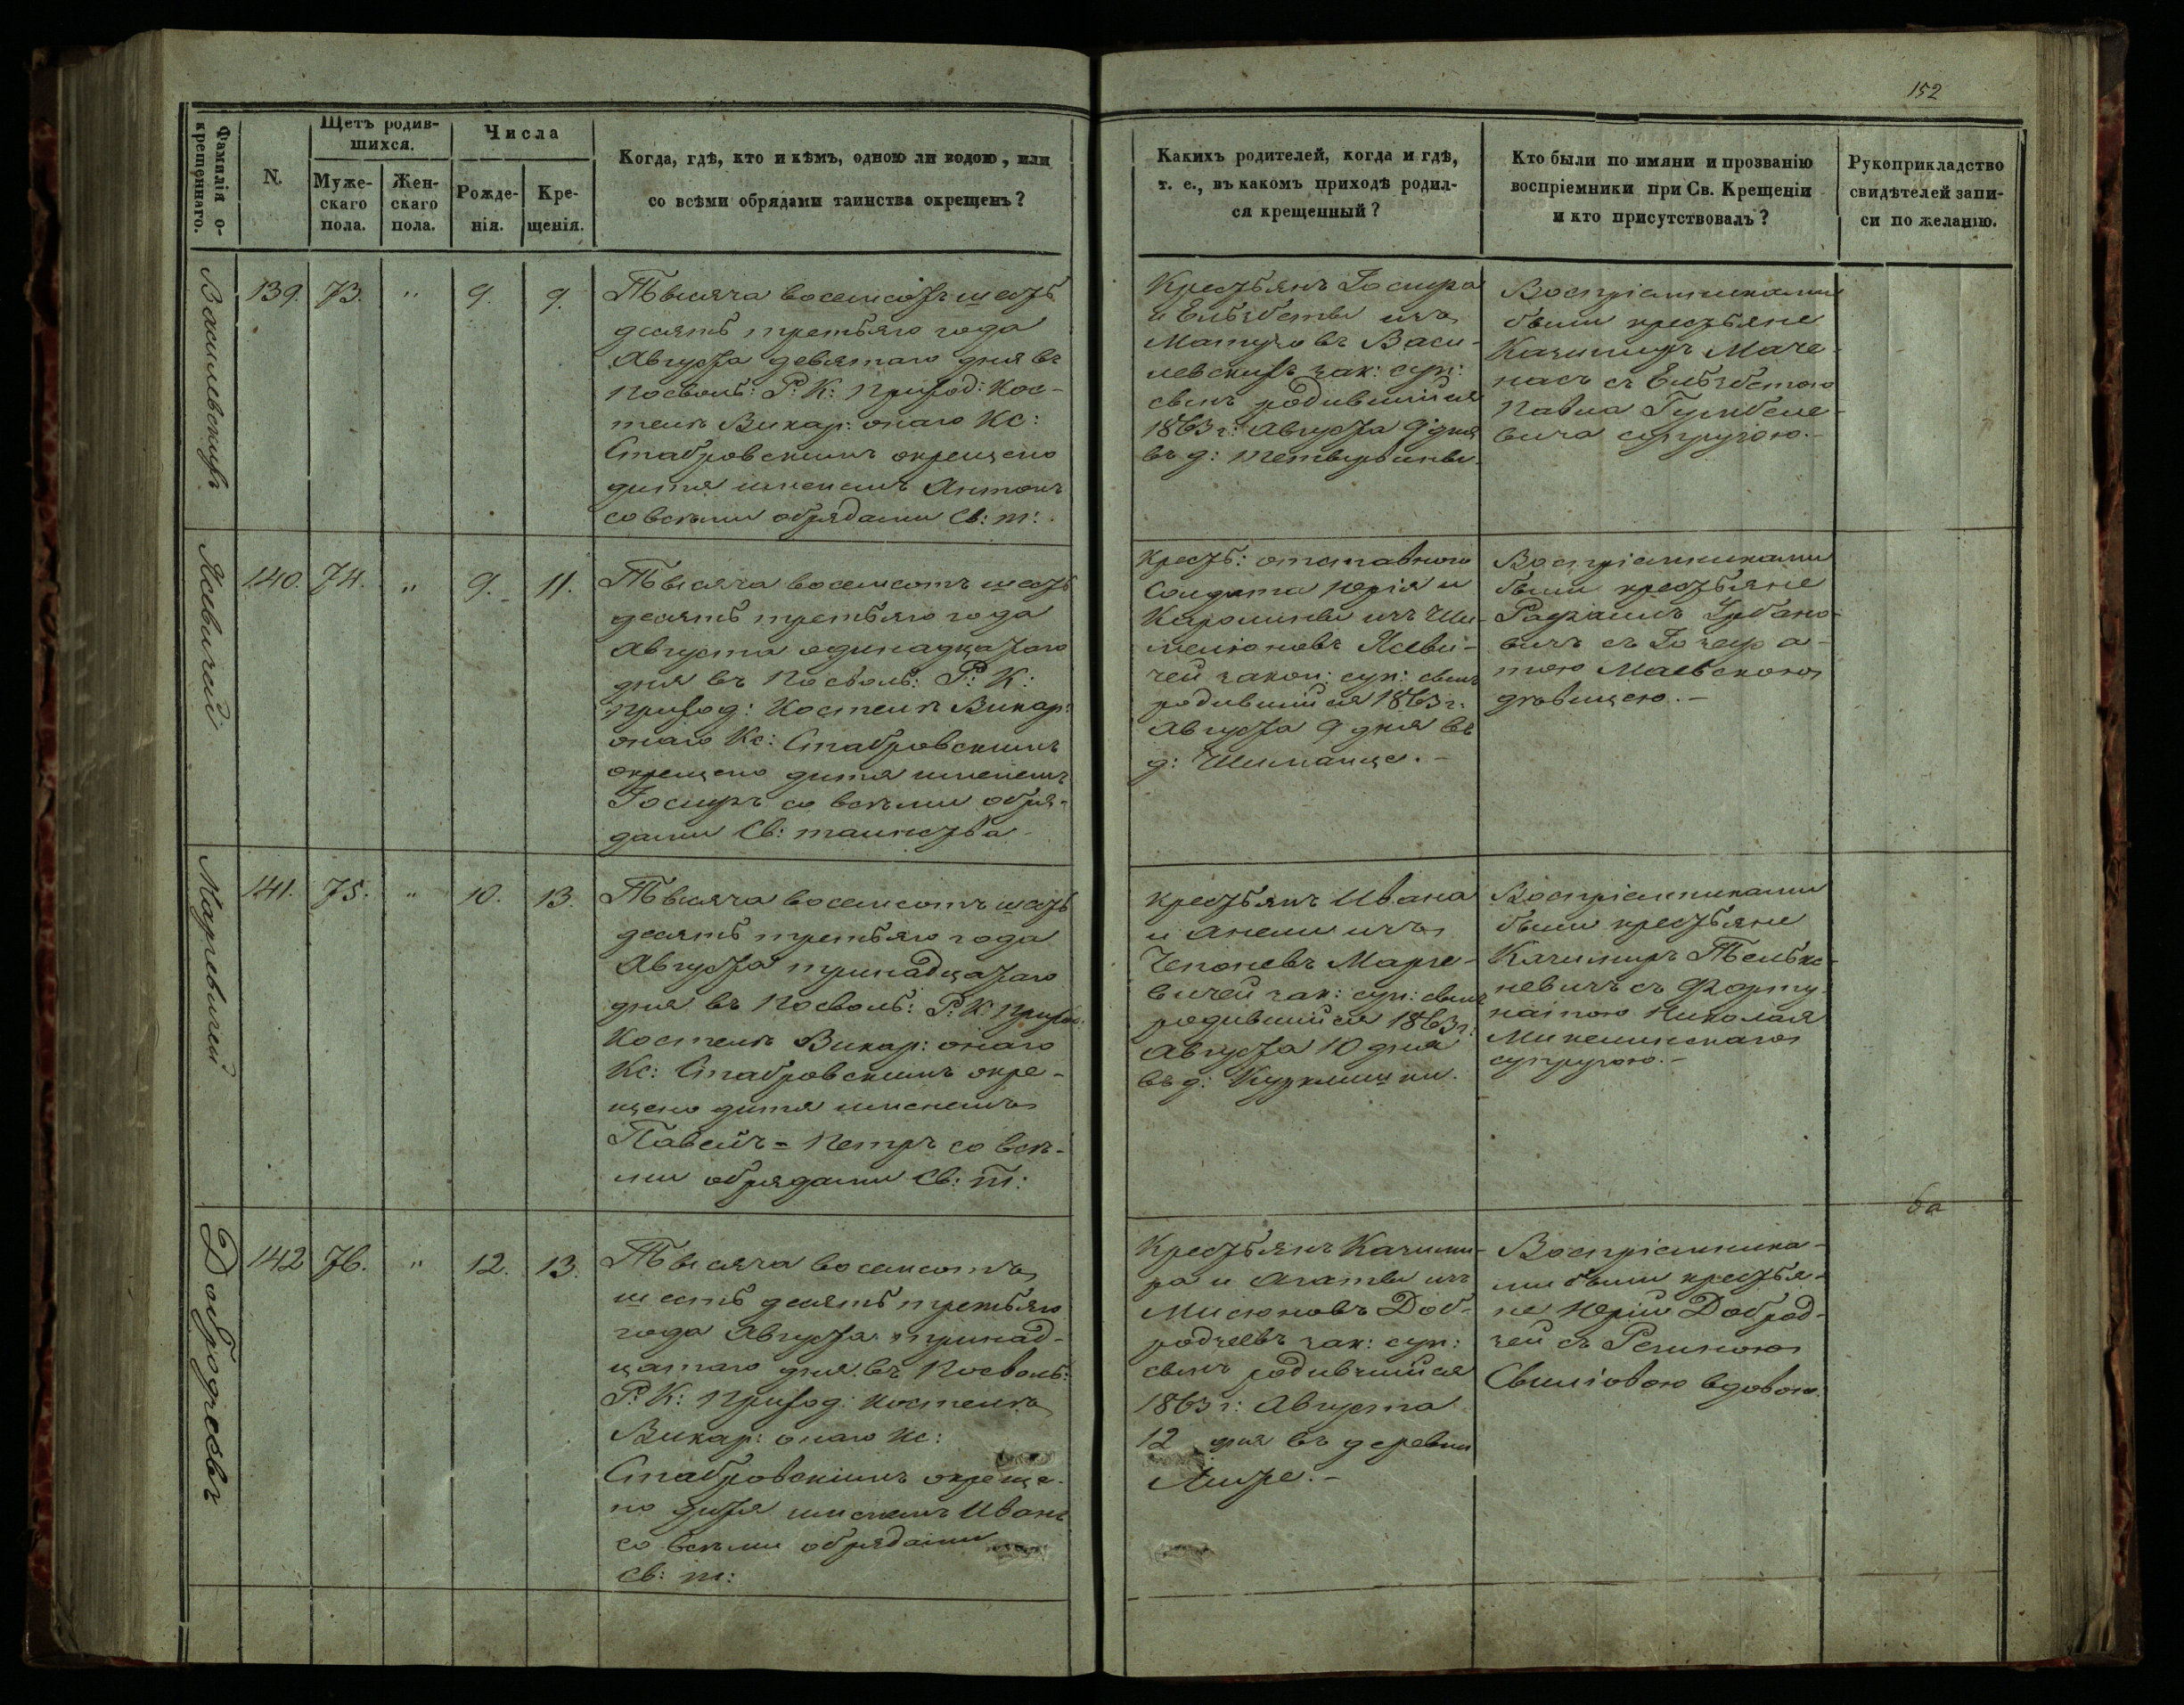 152
Фамилія о-
крещеннаго.
N.
Щетъ родив-
шихся.
Муже-
скаго
пола.
Жен-
скаго
пола.
Числа
Рожде-
нія.
Кре-
щенія.
Когда, гдѣ, кто и кѣмъ, одною ли водою, или
со всѣми обрядами таинства окрещенъ?
Какихъ родителей, когда и гдѣ,
т. е., въ какомъ приходѣ родил-
ся крещенный?
Кто были по имяни и прозванію
воспріемники при Св. Крещеніи
и кто присутствовалъ?
Рукоприкладство
свидѣтелей запи-
си по желанію.
Василевскихъ
139. 73. " 9. 9.
Тысяча восемсотъ шесть
десять третьяго года
Августа девятаго дня въ
Посволь: Р: К: Приход: Кос-
телѣ Викар: онаго Кс:
Стабровскимъ окрещено
дитя именемъ Антонъ
со всѣми обрядами Св: т:
Крестьянъ Іосифа
и Елизбеты изъ
Матузовъ Васи-
левскихъ зак: суп:
сынъ родившійся
1863 г: Августа 9 дня
въ д:
Воспріемниками
были крестьяне
Казимиръ Маче-
насъ съ Елизбетою
Павла Гумбеле-
вича супругою.-
Ясевичей
140. 74. " 9. 11.
Тысяча восемсотъ шесть
десять третьяго года
Августа одинадцатаго
дня въ Посволь: Р: К:
Приход: Костелѣ Викар:
онаго Кс: Стабровскимъ
окрещено дитя именемъ
Іосифъ со всѣми обря-
дами Св: таинства
Крестъ: отставного
Солдата Юрія и
Каролины изъ Ши-
мелюновъ Ясеви-
чей закон: суп: сынъ
родившійся 1863 г:
Августа 9 дня въ
д: Шиманце.-
Воспріемниками
были крестьяне
Урбано-
вичъ съ Іозефа-
тою Маевскою
дѣвицею.-
Маргевичей
141. 75. " 10. 13.
Тысяча восемсотъ шесть
десять третьяго года
Августа тринадцатаго
дня въ Посволь: Р: К: Приход:
Костелѣ Викар: онаго
Кс: Стабровскимъ окре-
щено дитя именемъ
Павелъ=Петръ со всѣ-
ми обрядами Св: т:
Крестьянъ Ивана
и Анели изъ
Чепоневъ Марге-
вичей зак: суп: сынъ
родившійся 1863 г:
Августа 10 дня
въ д:
Воспріемниками
были крестьяне
Казимиръ
невичъ съ Форту
натою Николая
Микелинскаго
супругою.-
ба
Добродзеевъ
142 76. " 12. 13.
Тысяча восемсотъ
шесть десять третьяго
года Августа тринад-
цатаго дня въ Посволь:
Р: К: Приход: Костелѣ
Викар: онаго Кс:
Стабровскимъ окреще-
но дитя именемъ Иванъ
со всѣми обрядами
Св: т:
Крестьянъ Казими-
ра и Агаты изъ
Мисюновъ Доб-
родзеевъ зак: суп:
сынъ родившійся
1863 г: Августа
12 дня въ деревни
Воспріемника-
ми были крестья-
не Юрій Доброд-
зей съ
вдовою.